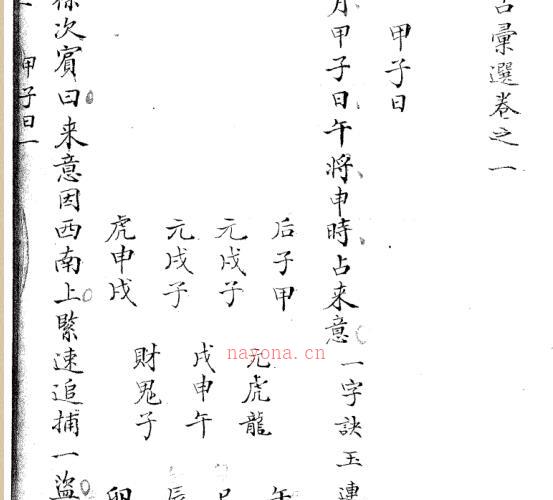 占彙選卷之一
甲子日
月甲子日午將申時占来意 一字訣玉連
后子甲
元戌子
元戌子
虎申戌
元虎龍
戌申午
財鬼子
午
巳
辰
卯
徐次賓曰来意因西南上緊速追捕一盜
甲子日一
nayona.cn